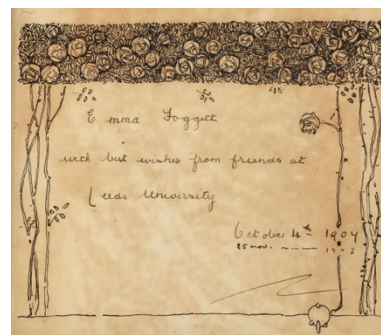 Emma Foggitt
with best wishes from friends at
Leeds University
October 4th 1904
25 nov.